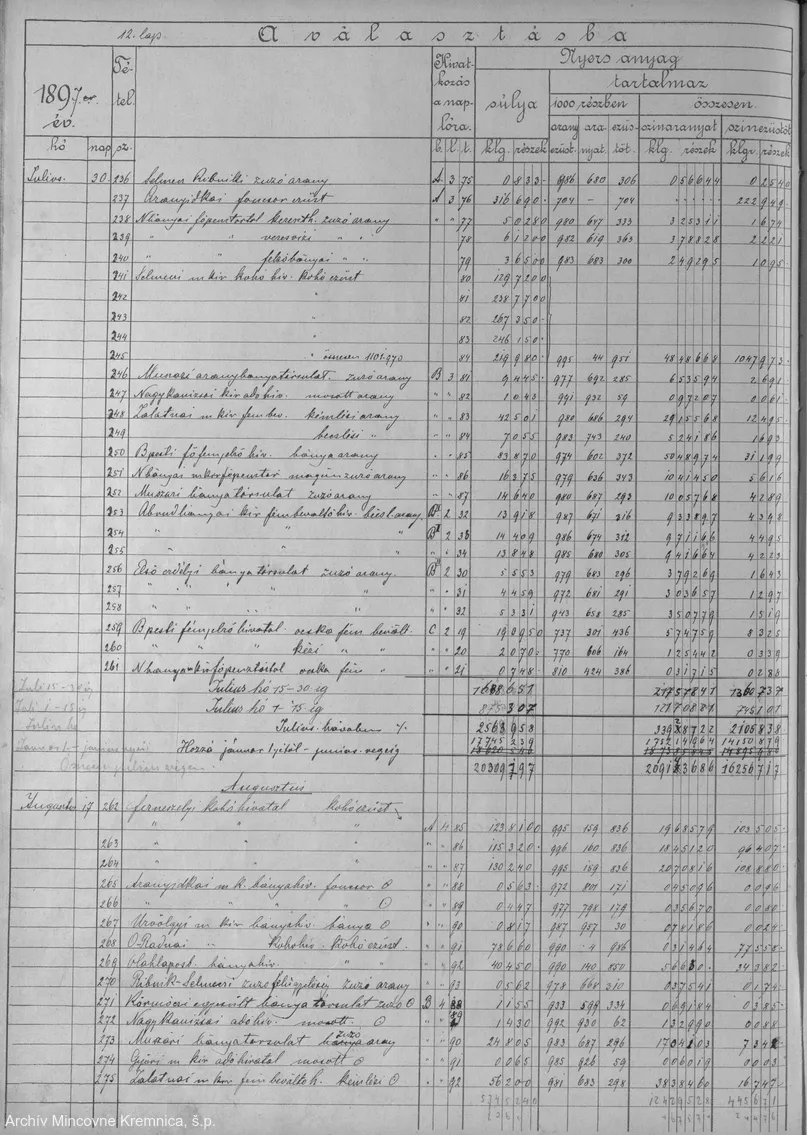 12. lap.
A választásba
1897.es év.
Té-tel sz.
Hivat-kozás a nap-lóra.
Nyers anyag
súlya
tartalmaz
1000 részben
összesen.
arany ezüst. ara nyat. ezüs-töt.
színaranyat színezüstöt
hó nap sz. l. t. klg. részek klg. részek klgr. részek
Julius. 30. 236 Selmen Ribniki zuzó arany A 3 75 0 833 986 680 306 0 56644 0 2540
237 Aranyidkai foncsor ezüst A 3 76 316 690 704 – 704 222 949
238 Nbányai főpénztártol kereszth. zuzó arany " " 77 5 0280 980 647 333 3 25311 1 674
239 " " veresvizi " " 78 6 1200 982 619 363 3 78828 2 221
240 " " felsőbányai " " 79 3 6500 983 683 300 2 49295 1 095
241 Selmeci m kir kohó hiv. kohó ezüst 80 129 7200
242 " 81 238 7700
243 " 82 267 350
244 " 83 246 150
245 " összesen 1101.970 84 219 980 995 44 951 48 48668 1047 973
246 Muszári aranybányatársulat. zuzó arany B 3 81 9 445 977 692 285 6 53594 2 691
247 Nagykanizsai kir adó hiv. mosott arany " " 82 1 043 991 932 59 0 97207 0 061
248 Zalatnai m kir fembev. kémlési arany " " 83 42 501 980 686 294 29 15568 12 495
249 " 84 7 055 983 743 240 5 24186 1 693
250 Bpesti főfémjelző hiv. bánya arany " " 85 83 870 974 602 372 50 48974 31 199
251 Nbányai m kir főpénztár magán zuzó arany " " 86 16 375 979 636 343 10 41450 5 616
252 Muszári bányatársulat zuzó arany " " 87 14 640 980 687 293 10 05768 4 289
253 Abrudbányai kir fembeváltó hiv. arany 2 32 13 918 987 671 316 9 33897 4 398
254 " " " 2 33 14 409 986 674 312 9 71166 4 495
255 " " " 34 13 848 985 680 305 9 41664 4 223
256 Első erdélyi bányatársulat zuzó arany. 2 30 5 553 979 683 296 3 79269 1 643
257 " " " " 31 4 459 972 681 291 3 03657 1 297
258 " " " " 32 5 331 943 658 285 3 50779 1 519
259 Bpesti fémjelző hivatal ócska fém bevált. C 2 19 19 0950 737 301 436 5 74759 8 325
260 " " kézi " " " 20 2 070 770 606 164 1 25442 0 339
261 Nbányai m kir főpénztártol ócska fém " " " 21 0 748 810 424 386 0 31715 0 288
Julius hó 15-30 ig 1688 651 217 57841 1360 737
Julius hó 1-15 ig 875 307 121 70881 745 101
Julius hávaben /. 2563 958 339 28722 2105 838
Hozzá január 1 jétől - junius. végéig 17745 239 1752 14964 14150 879
20309 197 2091 43686 16256 717
Augusztus
Augusztus 17 262 fernezelyi kohó hivatal kohó ezüst
" " " A 4 85 123 8100 995 159 836 19 68579 103 505
263 " " " " " 86 115 320 996 160 836 18 45120 96 407
264 " " " " " 87 130 240 995 159 836 20 70816 108 880
265 Aranyidkai m k. bányahiv. foncsor O " " 88 0 563 972 801 171 0 45096 0 096
266 " " " " O " " 89 0 447 977 798 179 0 35670 0 080
267 Urvölgyi m kir bányahiv bánya O " " 90 0 817 987 957 30 0 78186 0 024
268 O-Radnai " " kohóhiv. kohó ezüst. " " 91 78 660 990 4 986 0 31464 77 558
269 Oláhlapost. bányahiv. " " " " 92 40 450 990 140 850 5 6630 34 382
270 Ribnik-Selmeci zuzó felügyelőség zuzó arany " " 93 0 562 978 668 310 0 37541 0 174
271 Körmöci egyesült bánya társulat zuzó O B 4 88 1 155 933 599 334 0 69184 0 385
272 Nagykanizsai adó hiv. mosott. O " " 89 1 430 992 930 62 1 32990 0 088
273 Muszári bányatársulat zuzó arany " " 90 24 805 983 687 296 17 04103 7 342
274 Győri m kir adóhivatal mosott O " " 91 0 065 985 926 59 0 06019 0 003
275 Zalatnai m kir fembeváltó h. kémlési O " " 92 56 200 981 683 298 38 38460 16 747
574 5240 124 29528 445 671
Archív Mincovne Kremnica, š.p.